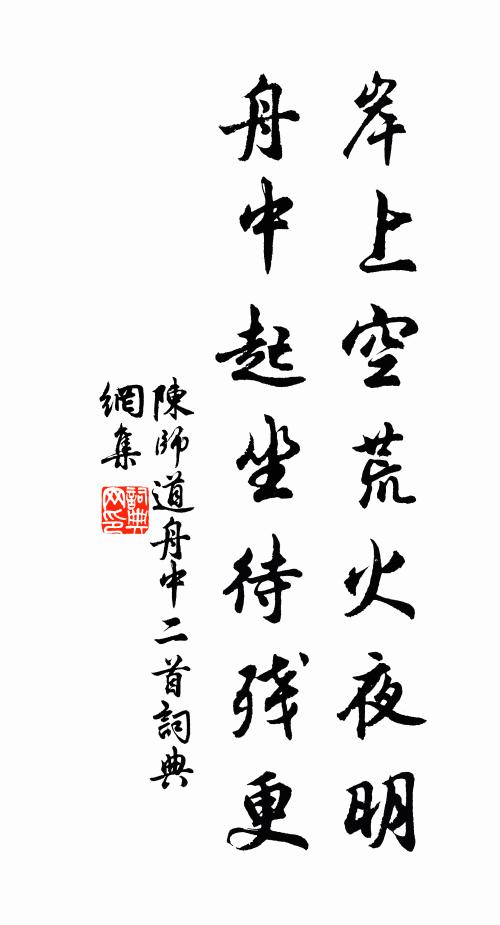 岸上空荒火夜明
舟中起坐待残更
陳師道舟中二首詞典
網集
詞典
网印